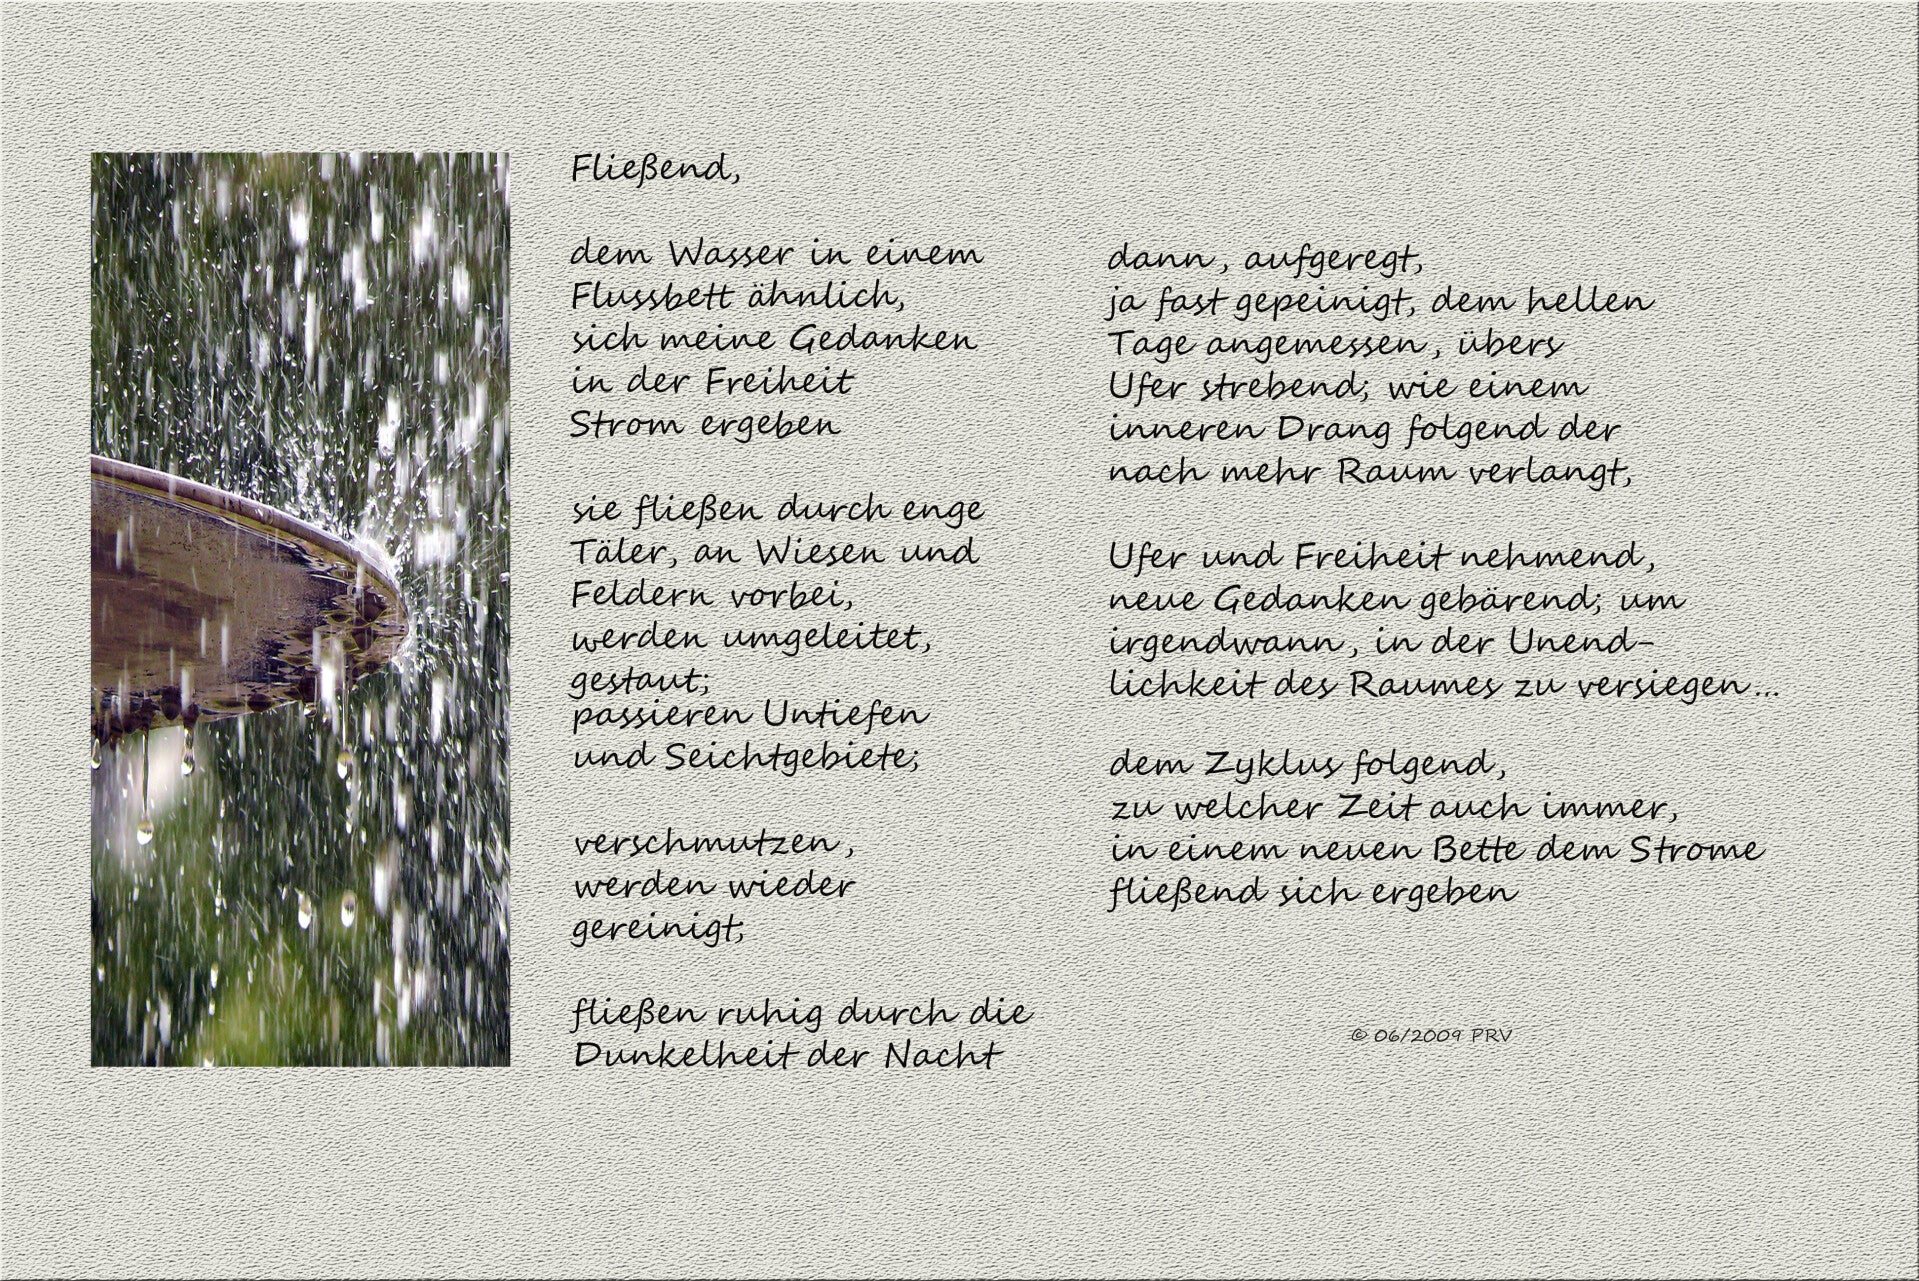 Fließend,
dem Wasser in einem
Flussbett ähnlich,
sich meine Gedanken
in der Freiheit
Strom ergeben
sie fließen durch enge
Täler, an Wiesen und
Feldern vorbei,
werden umgeleitet,
gestaut;
passieren Untiefen
und Seichtgebiete;
verschmutzen,
werden wieder
gereinigt;
fließen ruhig durch die
Dunkelheit der Nacht
dann, aufgeregt,
ja fast gepeinigt, dem hellen
Tage angemessen, übers
Ufer strebend; wie einem
inneren Drang folgend der
nach mehr Raum verlangt,
Ufer und Freiheit nehmend,
neue Gedanken gebärend; um
irgendwann, in der Unend-
lichkeit des Raumes zu versiegen...
dem Zyklus folgend,
zu welcher Zeit auch immer,
in einem neuen Bette dem Strome
fließend sich ergeben
© 06/2009 PRV